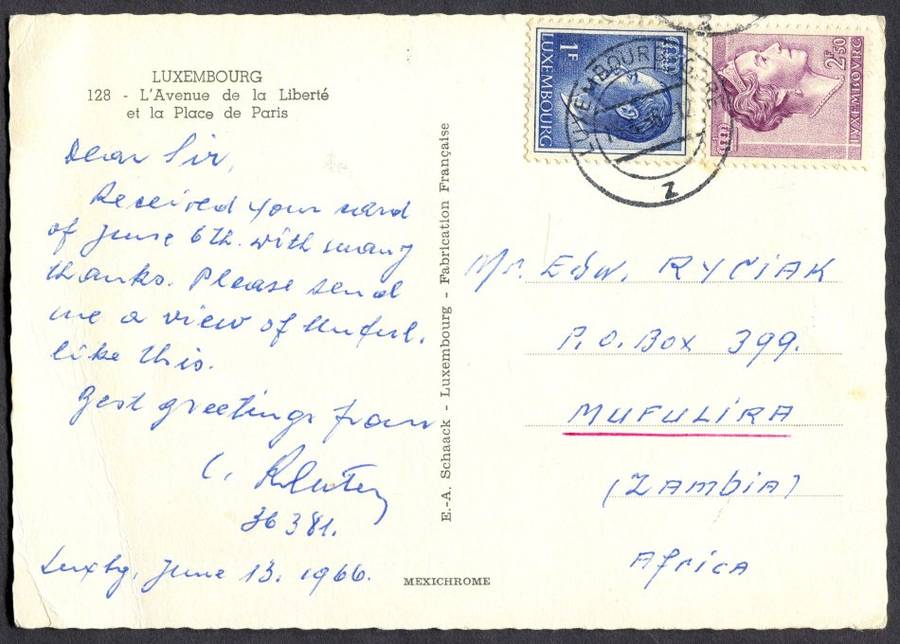 LUXEMBOURG
128 - L'Avenue de la Liberté
et la Place de Paris
Dear Sir,
Received your card
of June 6th. with many
thanks. Please send
me a view of Muful.
like this.
Best greetings from
C.
36381.
Luxbg, June 13. 1966.
E.-A. Schaack - Luxembourg - Fabrication Française
MEXICHROME
1F
LUXEMBOURG
2F50
LUXEMBOURG
LUXEMBOURG
2
Mr. EDW. RYCIAK
P.O. Box 399.
MUFULIRA
(ZAMBIA)
Africa